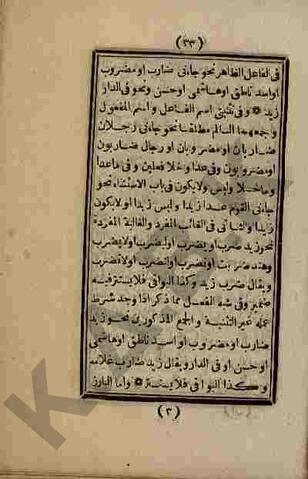 (٣٣)
فى الفاعل الظاهر نحو جاءنى ضارب او مضروب
او اسد ناطق او هاشمى او حسن ونحو فى الدار
زيد * وفى تثنيتى اسم الفاعل واسم المفعول
وجمعهما السالم مطلقا نحو جاءنى رجلان
ضاربان او مضروبان او رجال ضاربون
او مضروبون وفى عدا وخلا فعلين وفى ماعدا
وماخلا وليس ولا يكون فى باب الاستثناء نحو
جاءنى القوم عدا زيدا وليس زيدا او لايكون
زيدا والثانى فى الغائب المفرد والغائبة المفردة
نحو زيد ضرب او يضرب او ليضرب او لايضرب
وهند ضربت او تضرب او لتضرب او لاتضرب
ويقال ضرب زيد وكذا البواقى فلا يستتر فيه
ضمير وفى شبه الفعل مما ذكر اذا وجد شرط
عمله غير التثنية والجمع المذكورين نحو زيد
ضارب او مضروب او اسد ناطق او هاشمى
او حسن او فى الدار ويقال زيد ضارب غلامه
وكذا البواقى فلا يستتر * واما البارز
(٣)